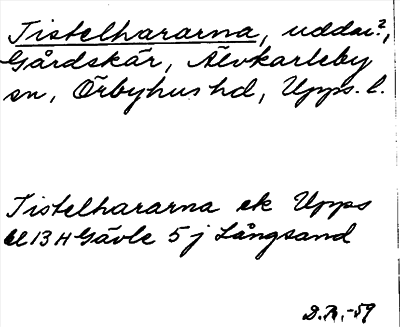 Tistelhararna, uddar?,
Gårdskär, Älvkarleby
sn, Örbyhus hd, Upps. l.
Tistelhararna ek Upps
bl 13 H Gävle 5 j Långsand
D.R.-59